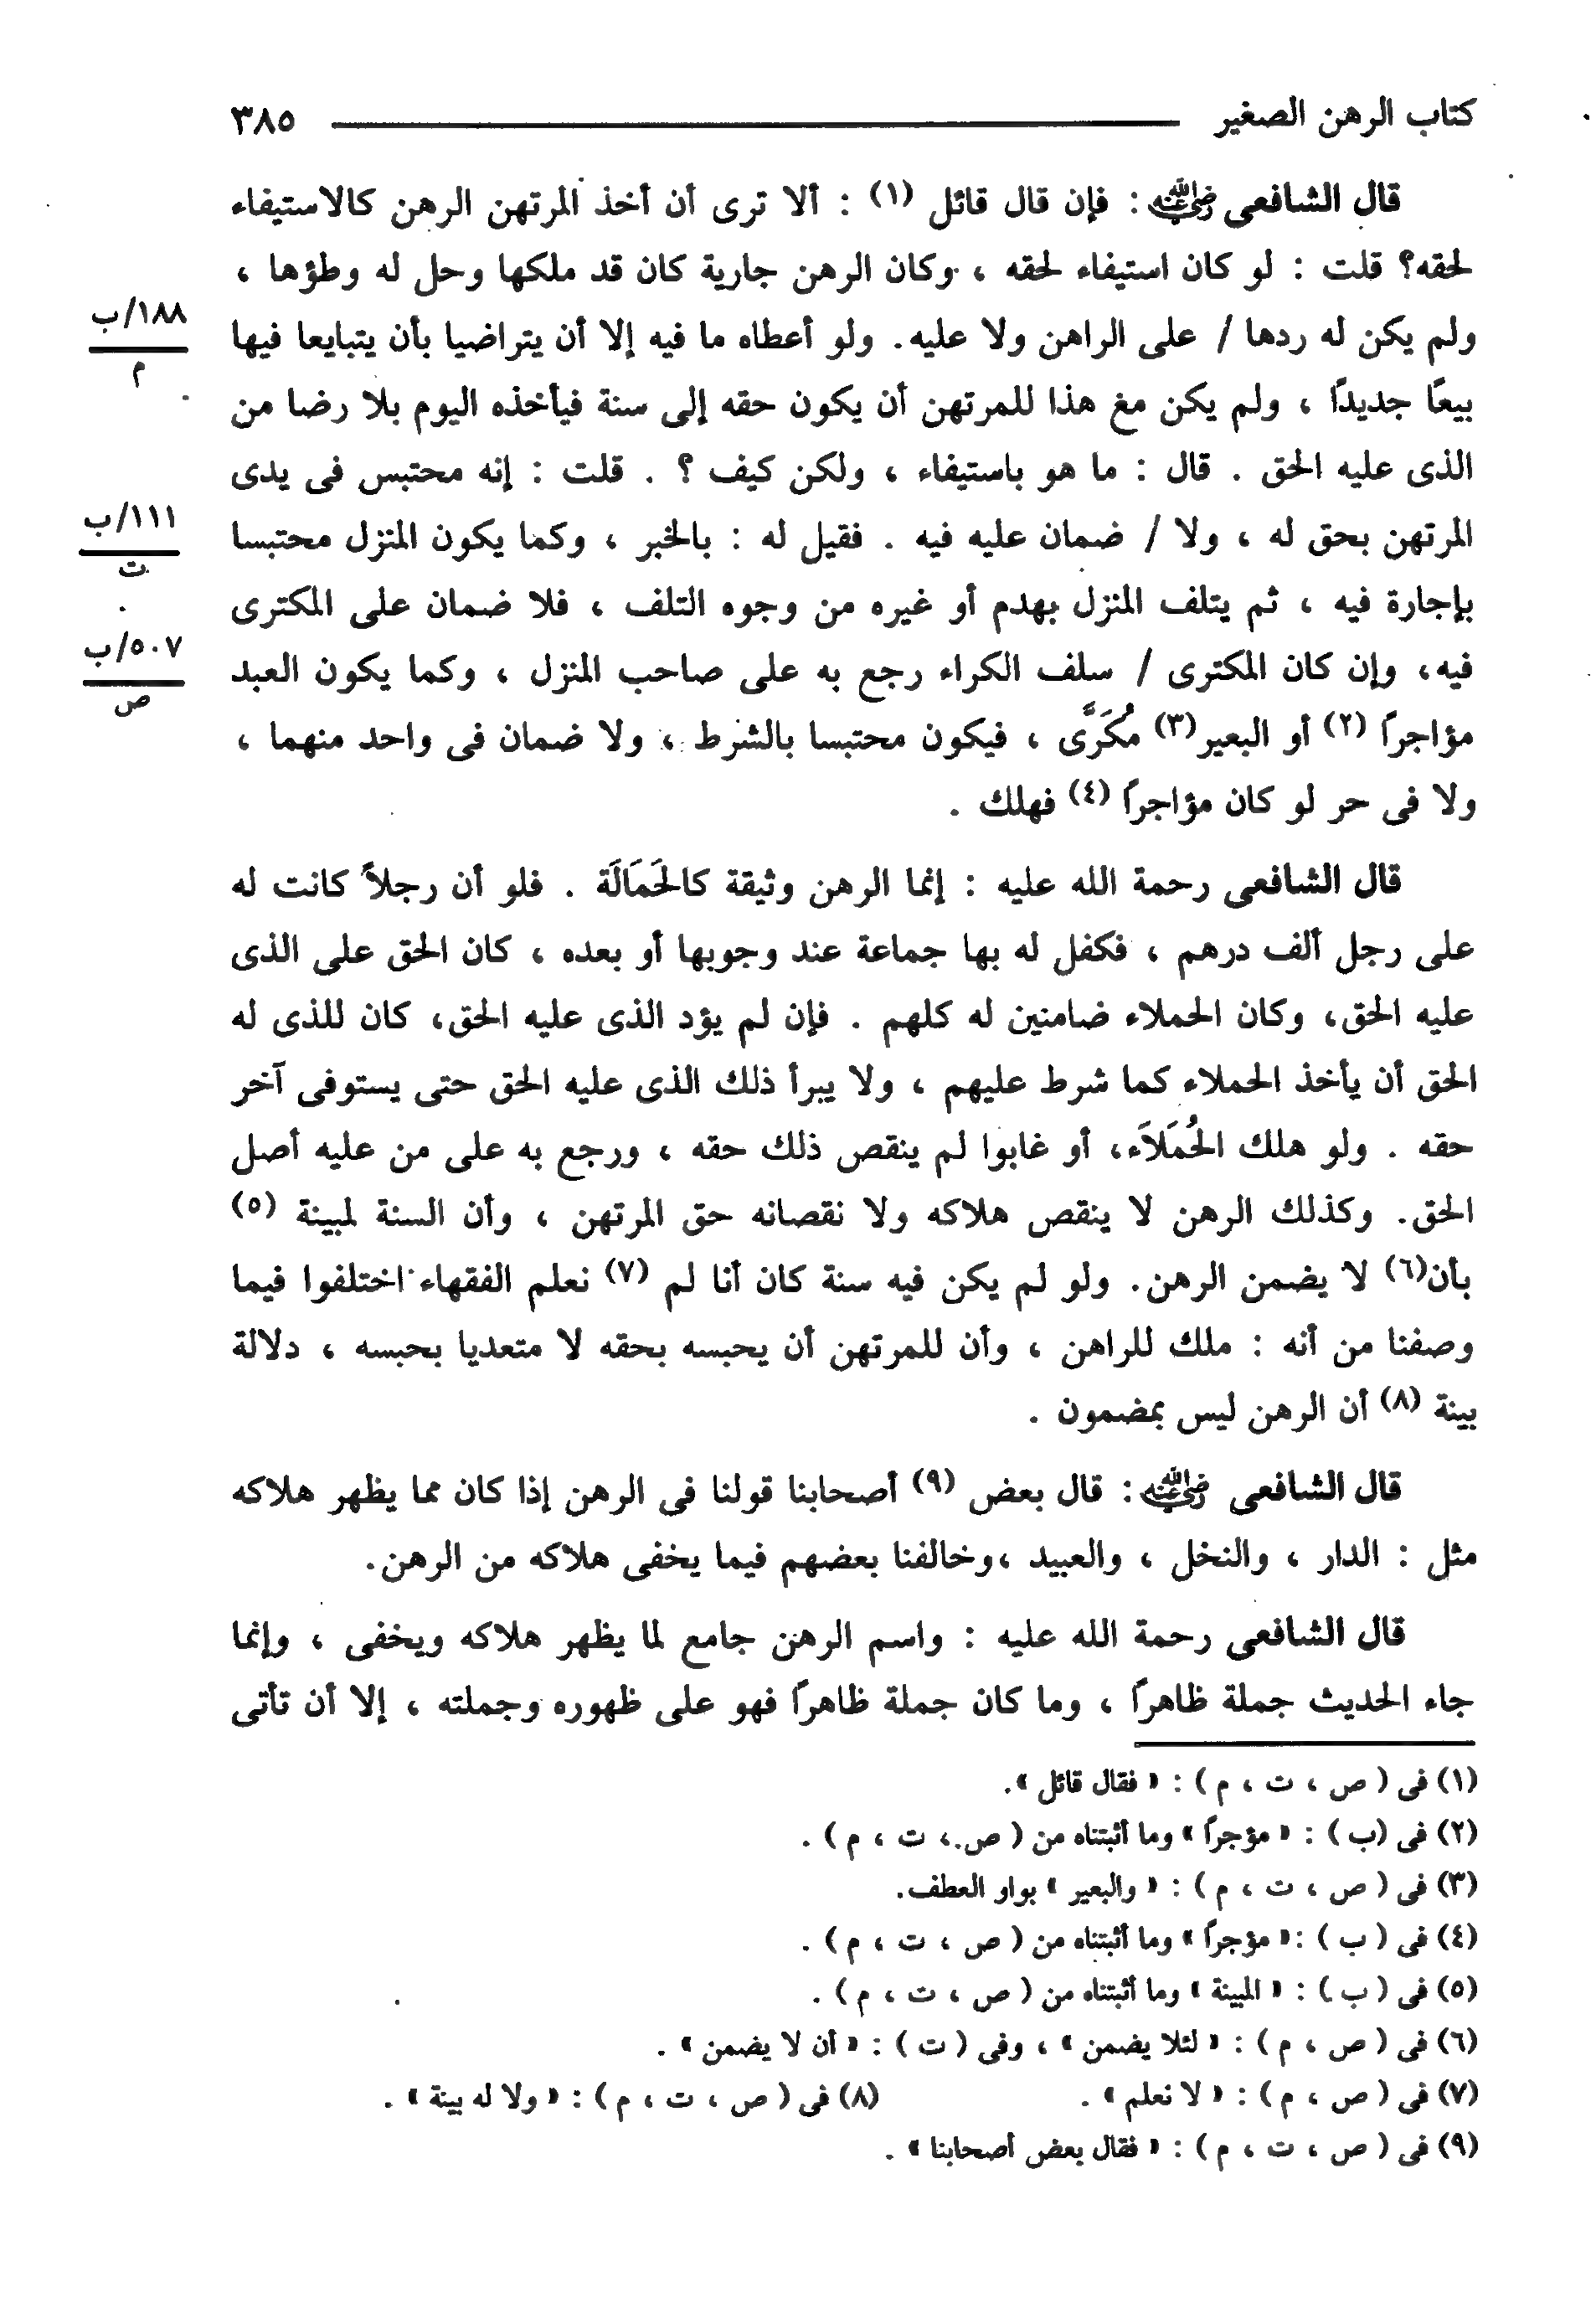 كتاب الرهن الصغير ٣٨٥
قال الشافعى رضي الله عنه : فإن قال قائل (١) : ألا ترى أن أخذ المرتهن الرهن كالاستيفاء
لحقه؟ قلت : لو كان استيفاء لحقه ، وكان الرهن جارية كان قد ملكها وحل له وطؤها ،
ولم يكن له ردها / على الراهن ولا عليه. ولو أعطاه ما فيه إلا أن يتراضيا بأن يتبايعا فيها
١٨٨/ب
م
بيعًا جديدًا ، ولم يكن مع هذا للمرتهن أن يكون حقه إلى سنة فيأخذه اليوم بلا رضا من
الذى عليه الحق . قال : ما هو باستيفاء ، ولكن كيف ؟ . قلت : إنه محتبس فى يدى
المرتهن بحق له ، ولا / ضمان عليه فيه . فقيل له : بالخبر ، وكما يكون المنزل محتبسا
١١١/ب
ت
بإجارة فيه ، ثم يتلف المنزل بهدم أو غيره من وجوه التلف ، فلا ضمان على المكترى
فيه، وإن كان المكترى / سلف الكراء رجع به على صاحب المنزل ، وكما يكون العبد
٥٠٧/ب
ص
مؤاجرًا (٢) أو البعير(٣) مُكَرًى ، فيكون محتبسا بالشرط ، ولا ضمان فى واحد منهما ،
ولا فى حر لو كان مؤاجرًا (٤) فهلك .
قال الشافعى رحمة الله عليه : إنما الرهن وثيقة كالحَمَالَة . فلو أن رجلاً كانت له
على رجل ألف درهم ، فكفل له بها جماعة عند وجوبها أو بعده ، كان الحق على الذى
عليه الحق، وكان الحملاء ضامنين له كلهم . فإن لم يؤد الذى عليه الحق، كان للذى له
الحق أن يأخذ الحملاء كما شرط عليهم ، ولا يبرأ ذلك الذى عليه الحق حتى يستوفى آخر
حقه . ولو هلك الحُمَلاَء، أو غابوا لم ينقص ذلك حقه ، ورجع به على من عليه أصل
الحق. وكذلك الرهن لا ينقص هلاكه ولا نقصانه حق المرتهن ، وأن السنة لمبينة (٥)
بأن(٦) لا يضمن الرهن. ولو لم يكن فيه سنة كان أنا لم (٧) نعلم الفقهاء اختلفوا فيما
وصفنا من أنه : ملك للراهن ، وأن للمرتهن أن يحبسه بحقه لا متعديا بحبسه ، دلالة
بينة (٨) أن الرهن ليس بمضمون .
قال الشافعى رضي الله عنه : قال بعض (٩) أصحابنا قولنا فى الرهن إذا كان مما يظهر هلاكه
مثل : الدار ، والنخل ، والعبيد ،وخالفنا بعضهم فيما يخفى هلاكه من الرهن.
قال الشافعى رحمة الله عليه : واسم الرهن جامع لما يظهر هلاكه ويخفى ، وإنما
جاء الحديث جملة ظاهرًا ، وما كان جملة ظاهرًا فهو على ظهوره وجملته ، إلا أن تأتى
(١) فى ( ص ، ت ، م ) : « فقال قائل ».
(٢) فى (ب ) : « مؤجرًا » وما أثبتناه من ( ص ، ت ، م ) .
(٣) فى ( ص ، ت ، م ) : « والبعير » بواو العطف.
(٤) فى ( ب ) :« مؤجرًا » وما أثبتناه من ( ص ، ت ، م ) .
(٥) فى ( ب ) : « المبينة » وما أثبتناه من ( ص ، ت ، م ) .
(٦) فى ( ص ، م ) : « لئلا يضمن » ، وفى ( ت ) : « أن لا يضمن » .
(٧) فى ( ص ، م ) : « لا نعلم » . (٨) فى ( ص ، ت ، م ) : « ولا له بينة » .
(٩) فى ( ص ، ت ، م ) : « فقال بعض أصحابنا » .